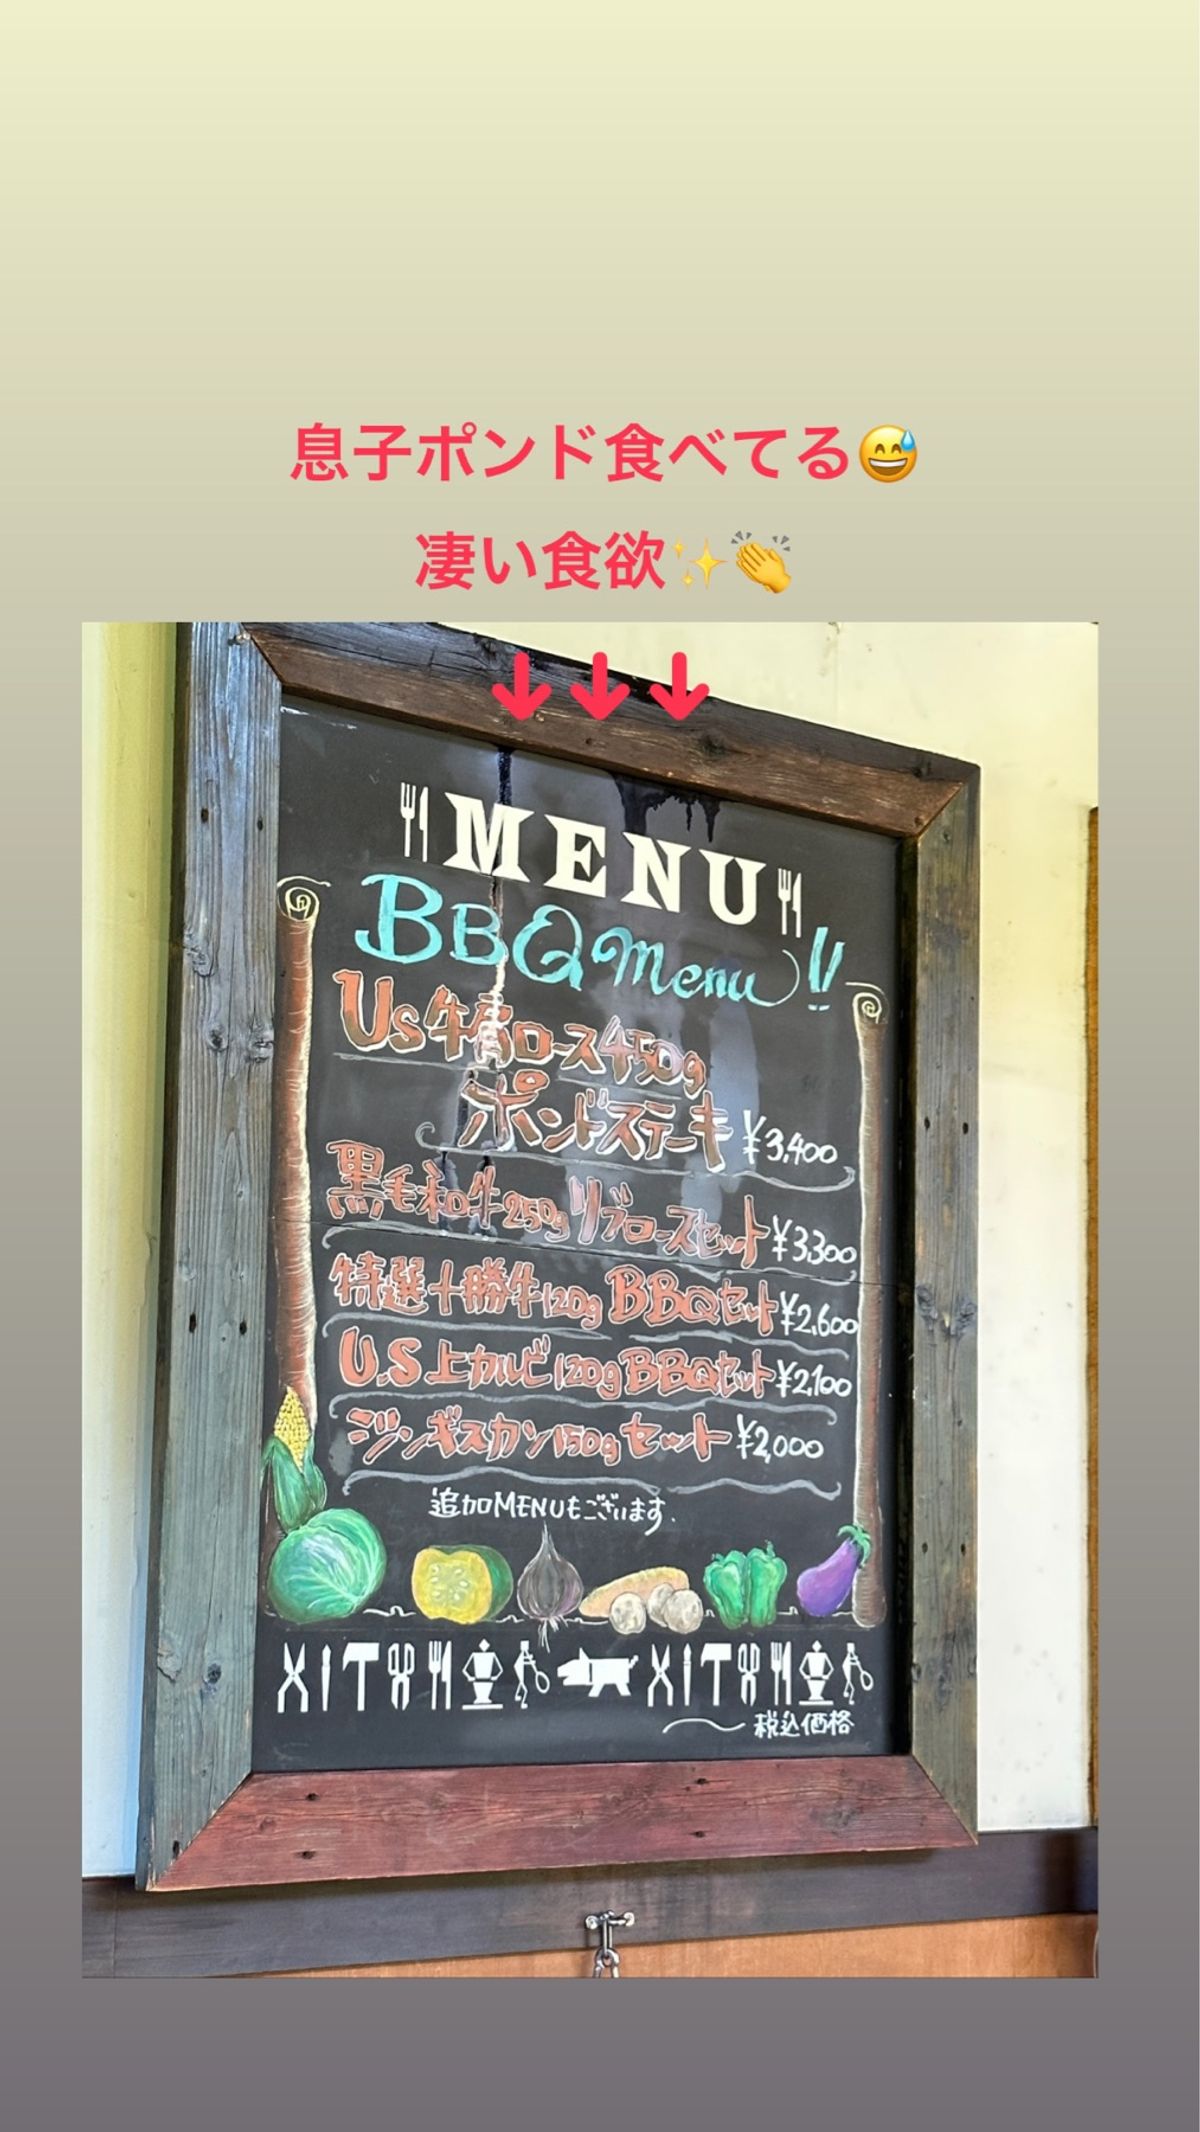 息子ポンド食べてる😅
凄い食欲✨👏
↓↓↓
MENU
BBQ Menu!!
US牛肩ロース450g
ポンドステーキ ¥3,400
黒毛和牛250gリブロースセット ¥3,300
特選十勝牛120g BBQセット ¥2,600
U.S上カルビ120g BBQセット ¥2,100
ジンギスカン150gセット ¥2,000
追加MENUもございます.
税込価格